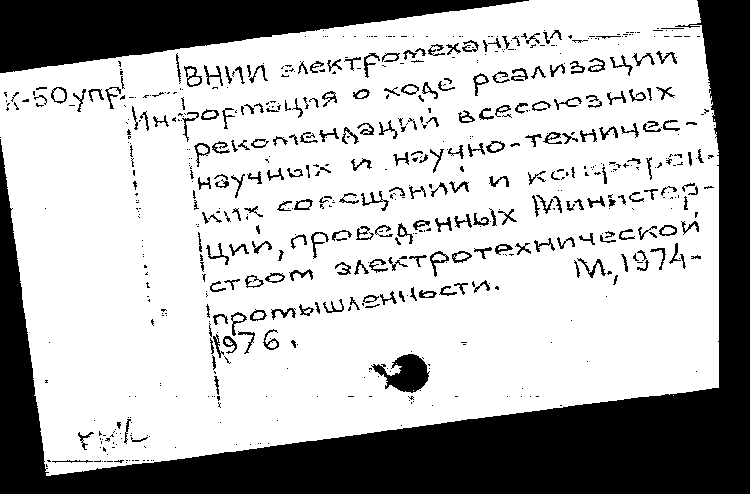 К-50упр.
ВНИИ электромеханики.
Информация о ходе реализации
рекомендаций всесоюзных
научных и научно-техничес-
ких совещаний и конферен-
ций, проведенных Министер-
ством электротехнической
промышленности. М., 1974-
1976.